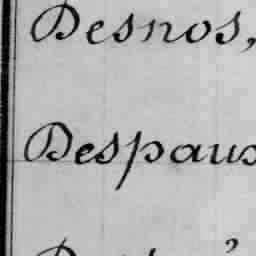 Desnos,
Despaux